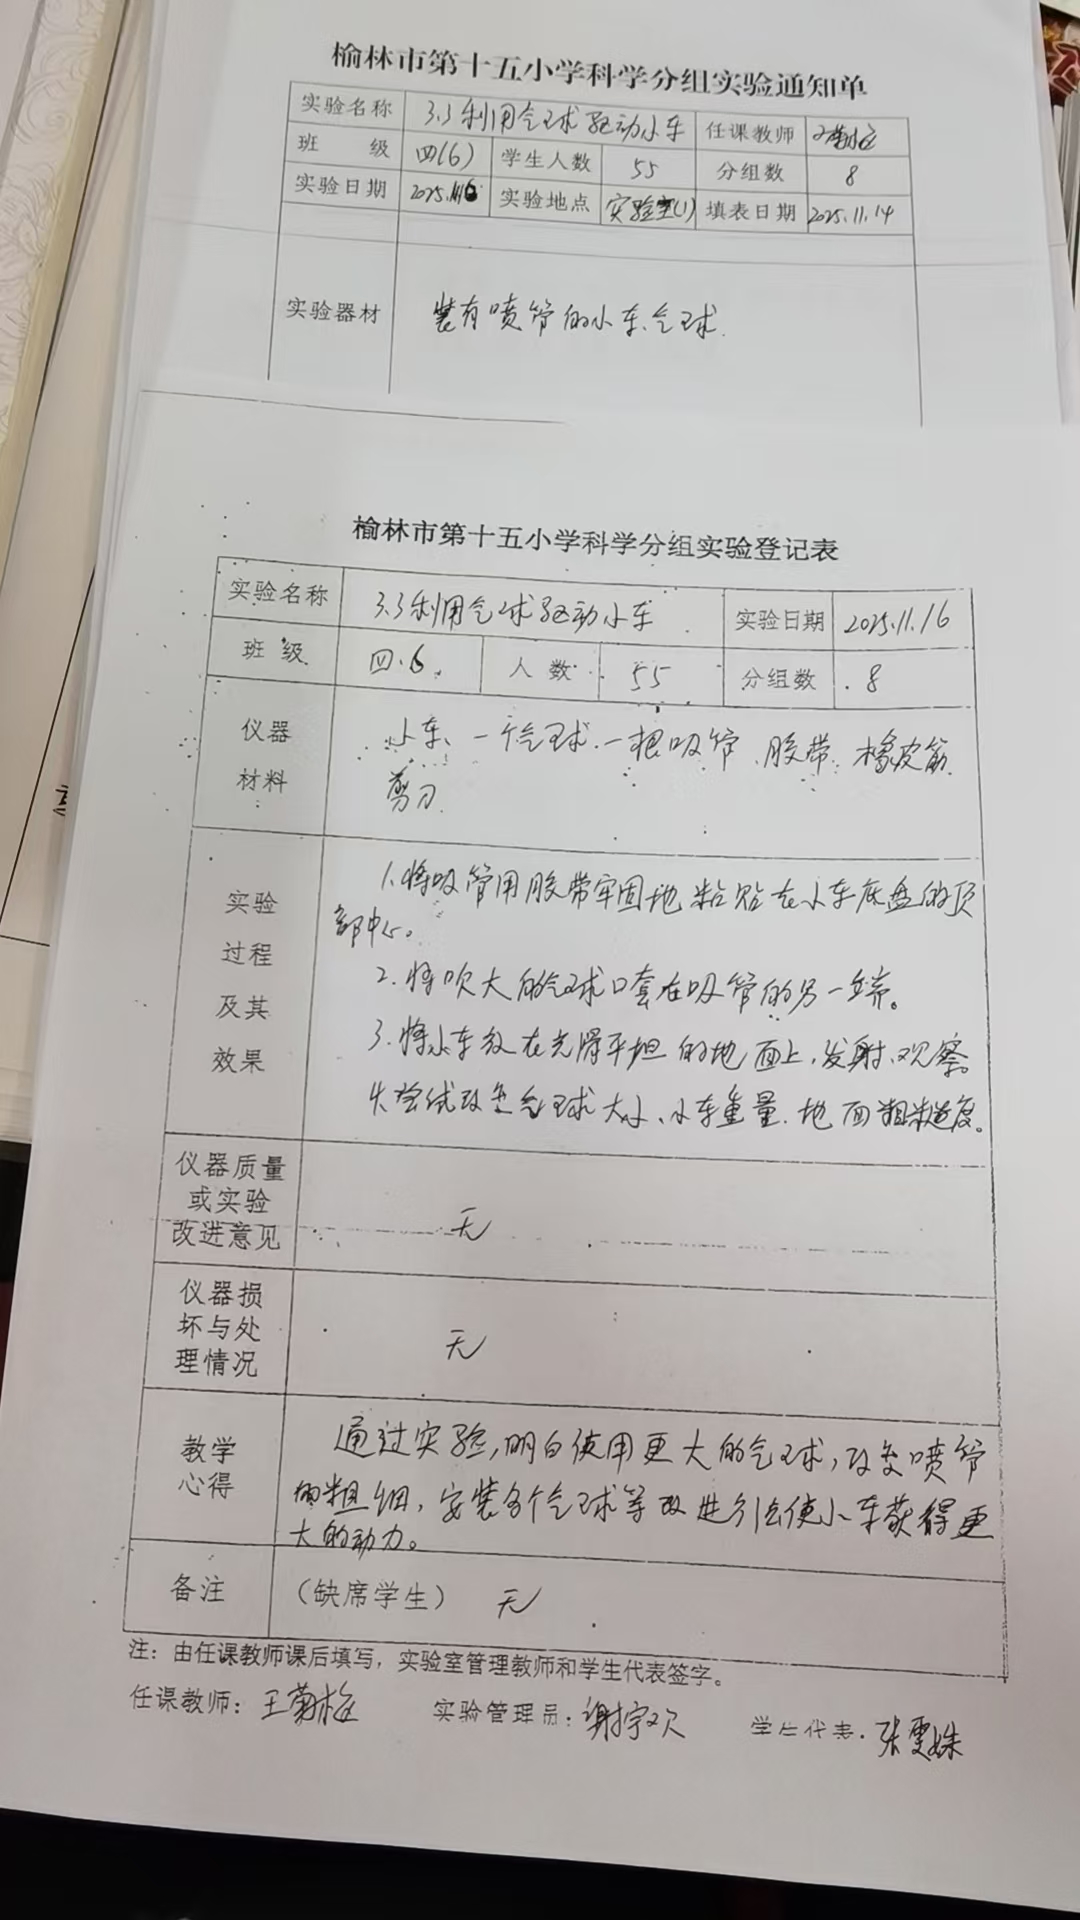 榆林市第十五小学科学分组实验通知单
实验名称 3.3利用气球驱动小车 任课教师
班 级 四(6) 学生人数 55 分组数 8
实验日期 实验地点 实验室(1) 填表日期 2025.11.14
实验器材 装有喷管的小车、气球.
榆林市第十五小学科学分组实验登记表
实验名称 3.3利用气球驱动小车 实验日期 2025.11.16
班 级 四.6 人 数 55 分组数 8
仪器 小车、一个气球.一根吸管、胶带、橡皮筋
材料 剪刀
实验 1.将吸管用胶带牢固地粘贴在小车底盘的顶
部中心。
过程 2.将吹大的气球口套在吸管的另一端。
及其 3.将小车放在光滑平坦的地面上,发射、观察。
效果 4.尝试改变气球大小、小车重量.地面粗糙度。
仪器质量
或实验 无
改进意见
仪器损
坏与处 无
理情况
教学 通过实验,明白使用更大的气球,改变喷管
心得 的粗细,安装多个气球等改进 会使小车获得更
大的动力。
备注 (缺席学生) 无
注:由任课教师课后填写,实验室管理教师和学生代表签字。
任课教师:王菊梅 实验管理员:谢宇欢 学生代表:张雯姝